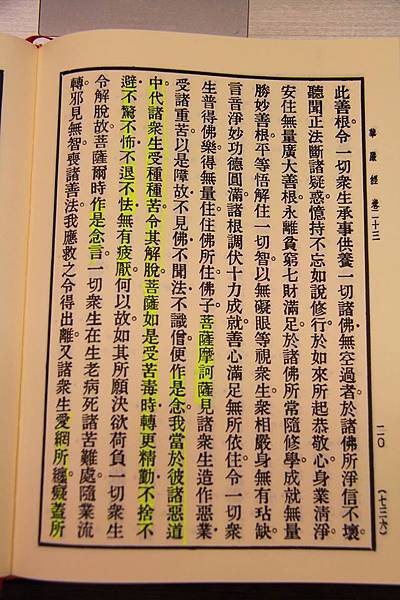 此善根。令一切衆生承事供養一切諸佛。無空過者。於諸佛所。淨信不壞。
聽聞正法。斷諸疑惑。憶持不忘。如說修行。於如來所。起恭敬心。身業清淨。
安住無量廣大善根。永離貧窮。七財滿足。於諸佛所。常隨修學。成就無量
勝妙善根。平等悟解。住一切智。以無礙眼等視衆生。衆相嚴身。無有玷缺。
言音淨妙。功德圓滿。諸根調伏。十力成就。善心滿足。無所依住。令一切衆
生普得佛樂。得無量住。住佛所住。佛子。菩薩摩訶薩見諸衆生造作惡業。
受諸重苦。以是障故。不見佛。不聞法。不識僧。便作是念。我當於彼諸惡道
中。代諸衆生受種種苦。令其解脫。菩薩如是受苦毒時。轉更精勤。不捨不
避。不驚不怖。不退不怯。無有疲厭。何以故。如其所願。決欲荷負一切衆生。
令解脫故。菩薩爾時作是念言。一切衆生在生老病死諸苦難處。隨業流
轉。邪見無智。喪諸善法。我應救之。令得出離。又諸衆生愛網所纏。癡蓋所
華嚴經卷二十三
二〇
(七三六)